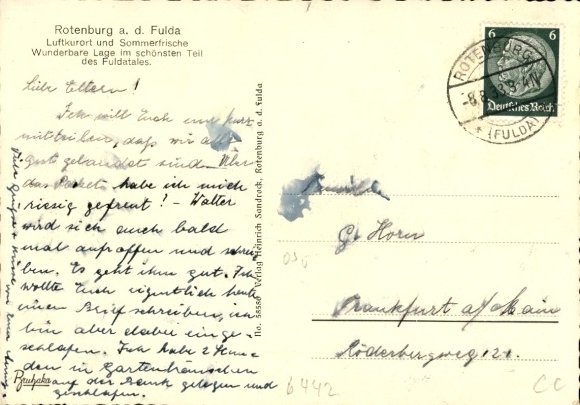 Rotenburg a. d. Fulda
Luftkurort und Sommerfrische
Wunderbare Lage im schönsten Teil
des Fuldatales.
Liebe Eltern!
Ich will Euch nur kurz
mitteilen, daß wir alle
gut gelandet sind. Über
das Packet habe ich mich
riesig gefreut! - Walter
wird sich auch bald
mal aufraffen und schrei-
ben. Es geht ihm gut. Ich
wollte Euch eigentlich heute
einen Brief schreiben, ich
bin aber dabei einge-
schlafen. Ich habe 2 Stun-
den in Gartenhäuschen
auf der Bank gelegen und
geschlafen.
Viele Grüße + Küsse von Eurer
Bruhaka
No. 58580 Verlag Heinrich Sandrock, Rotenburg a. d. Fulda
6 6
Deutsches Reich
ROTENBURG
(FULDA)
Familie
G. Horn
Frankfurt a/Main
Röderbergweg 121.
6442
CC